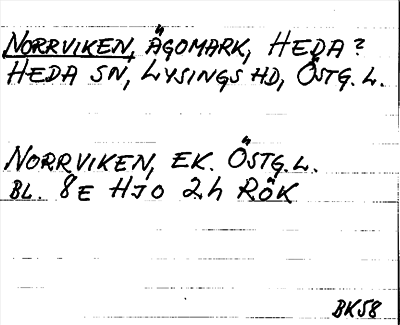 NORRVIKEN, ÄGOMARK, HEDA?
HEDA SN, LYSINGS HD, ÖSTG. L.
NORRVIKEN, EK. ÖSTG. L.
BL. 8E HJO 2h RÖK
BK58